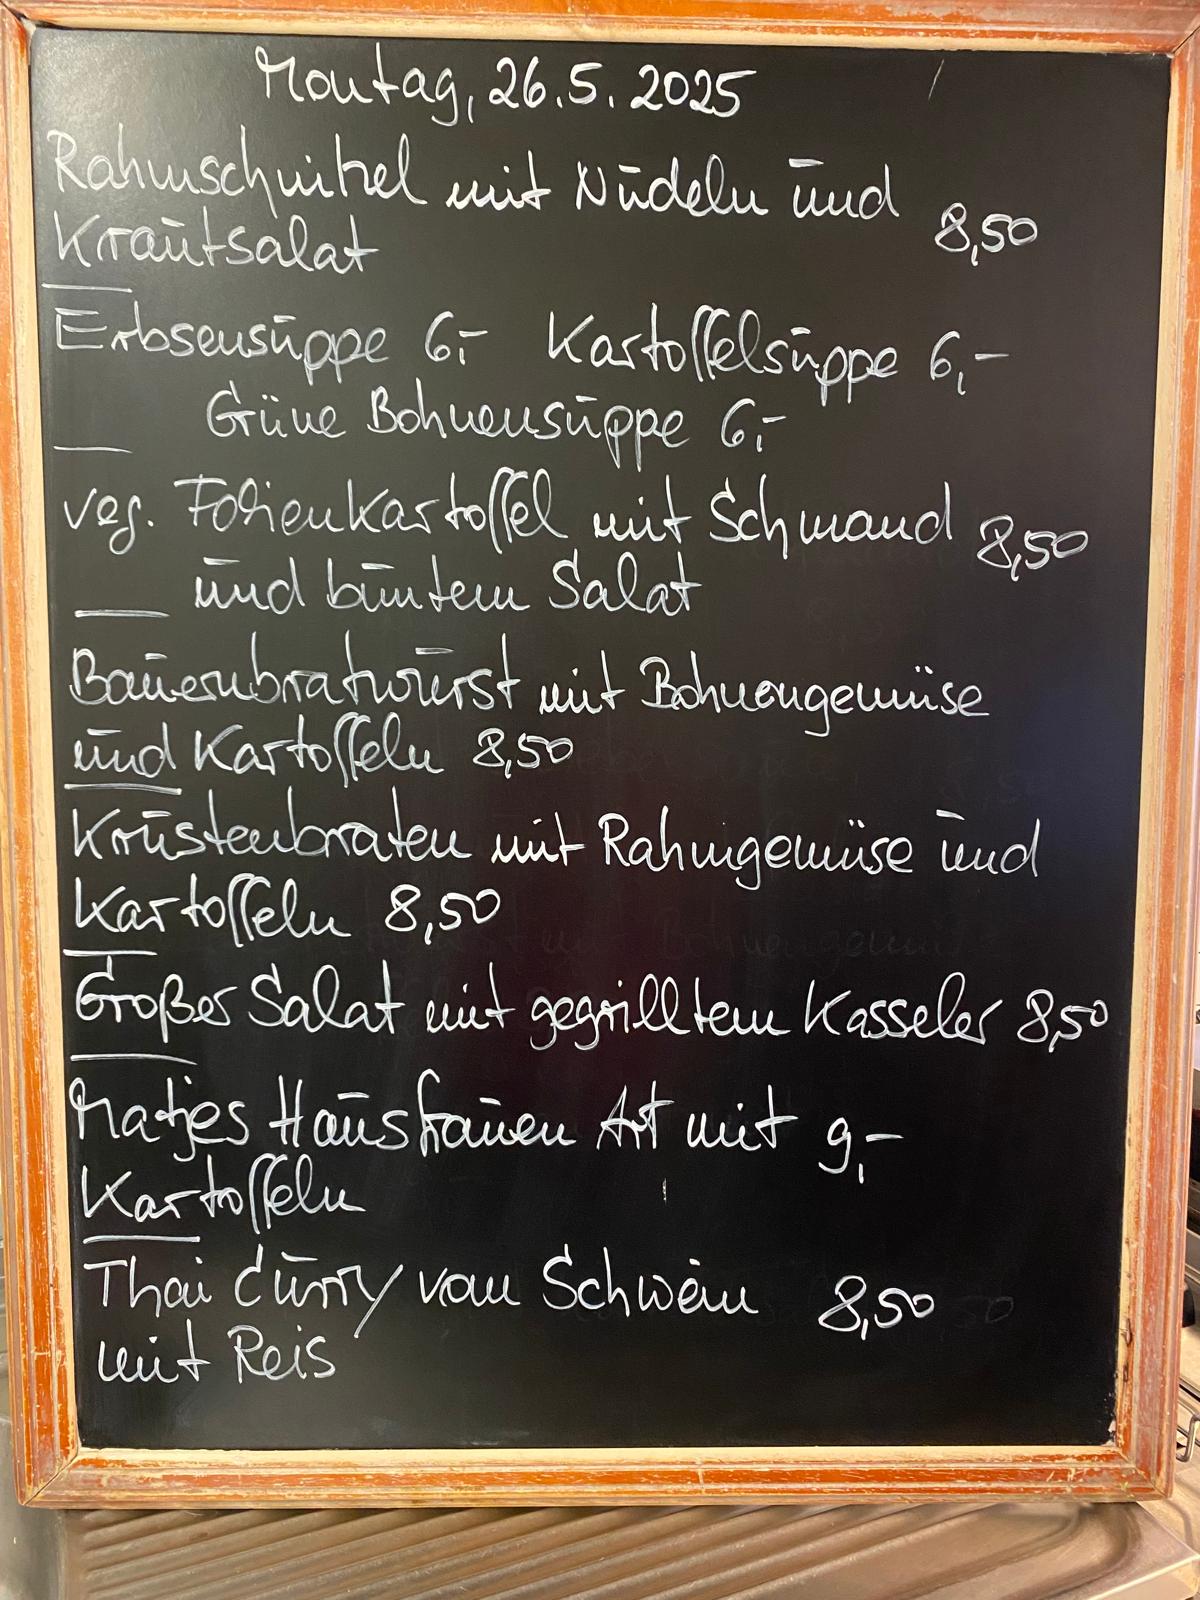 Montag, 26.5.2025
Rahmschnitzel mit Nudeln und
Krautsalat 8,50
Erbsensuppe 6,- Kartoffelsuppe 6,-
Grüne Bohnensuppe 6,-
veg. Folienkartoffel mit Schmand 8,50
und buntem Salat
Bauernbratwurst mit Bohnengemüse
und Kartoffeln 8,50
Krustenbraten mit Rahmgemüse und
Kartoffeln 8,50
Großer Salat mit gegrilltem Kasseler 8,50
Matjes Hausfrauen Art mit 9,-
Kartoffeln
Thai Curry vom Schwein 8,50
mit Reis